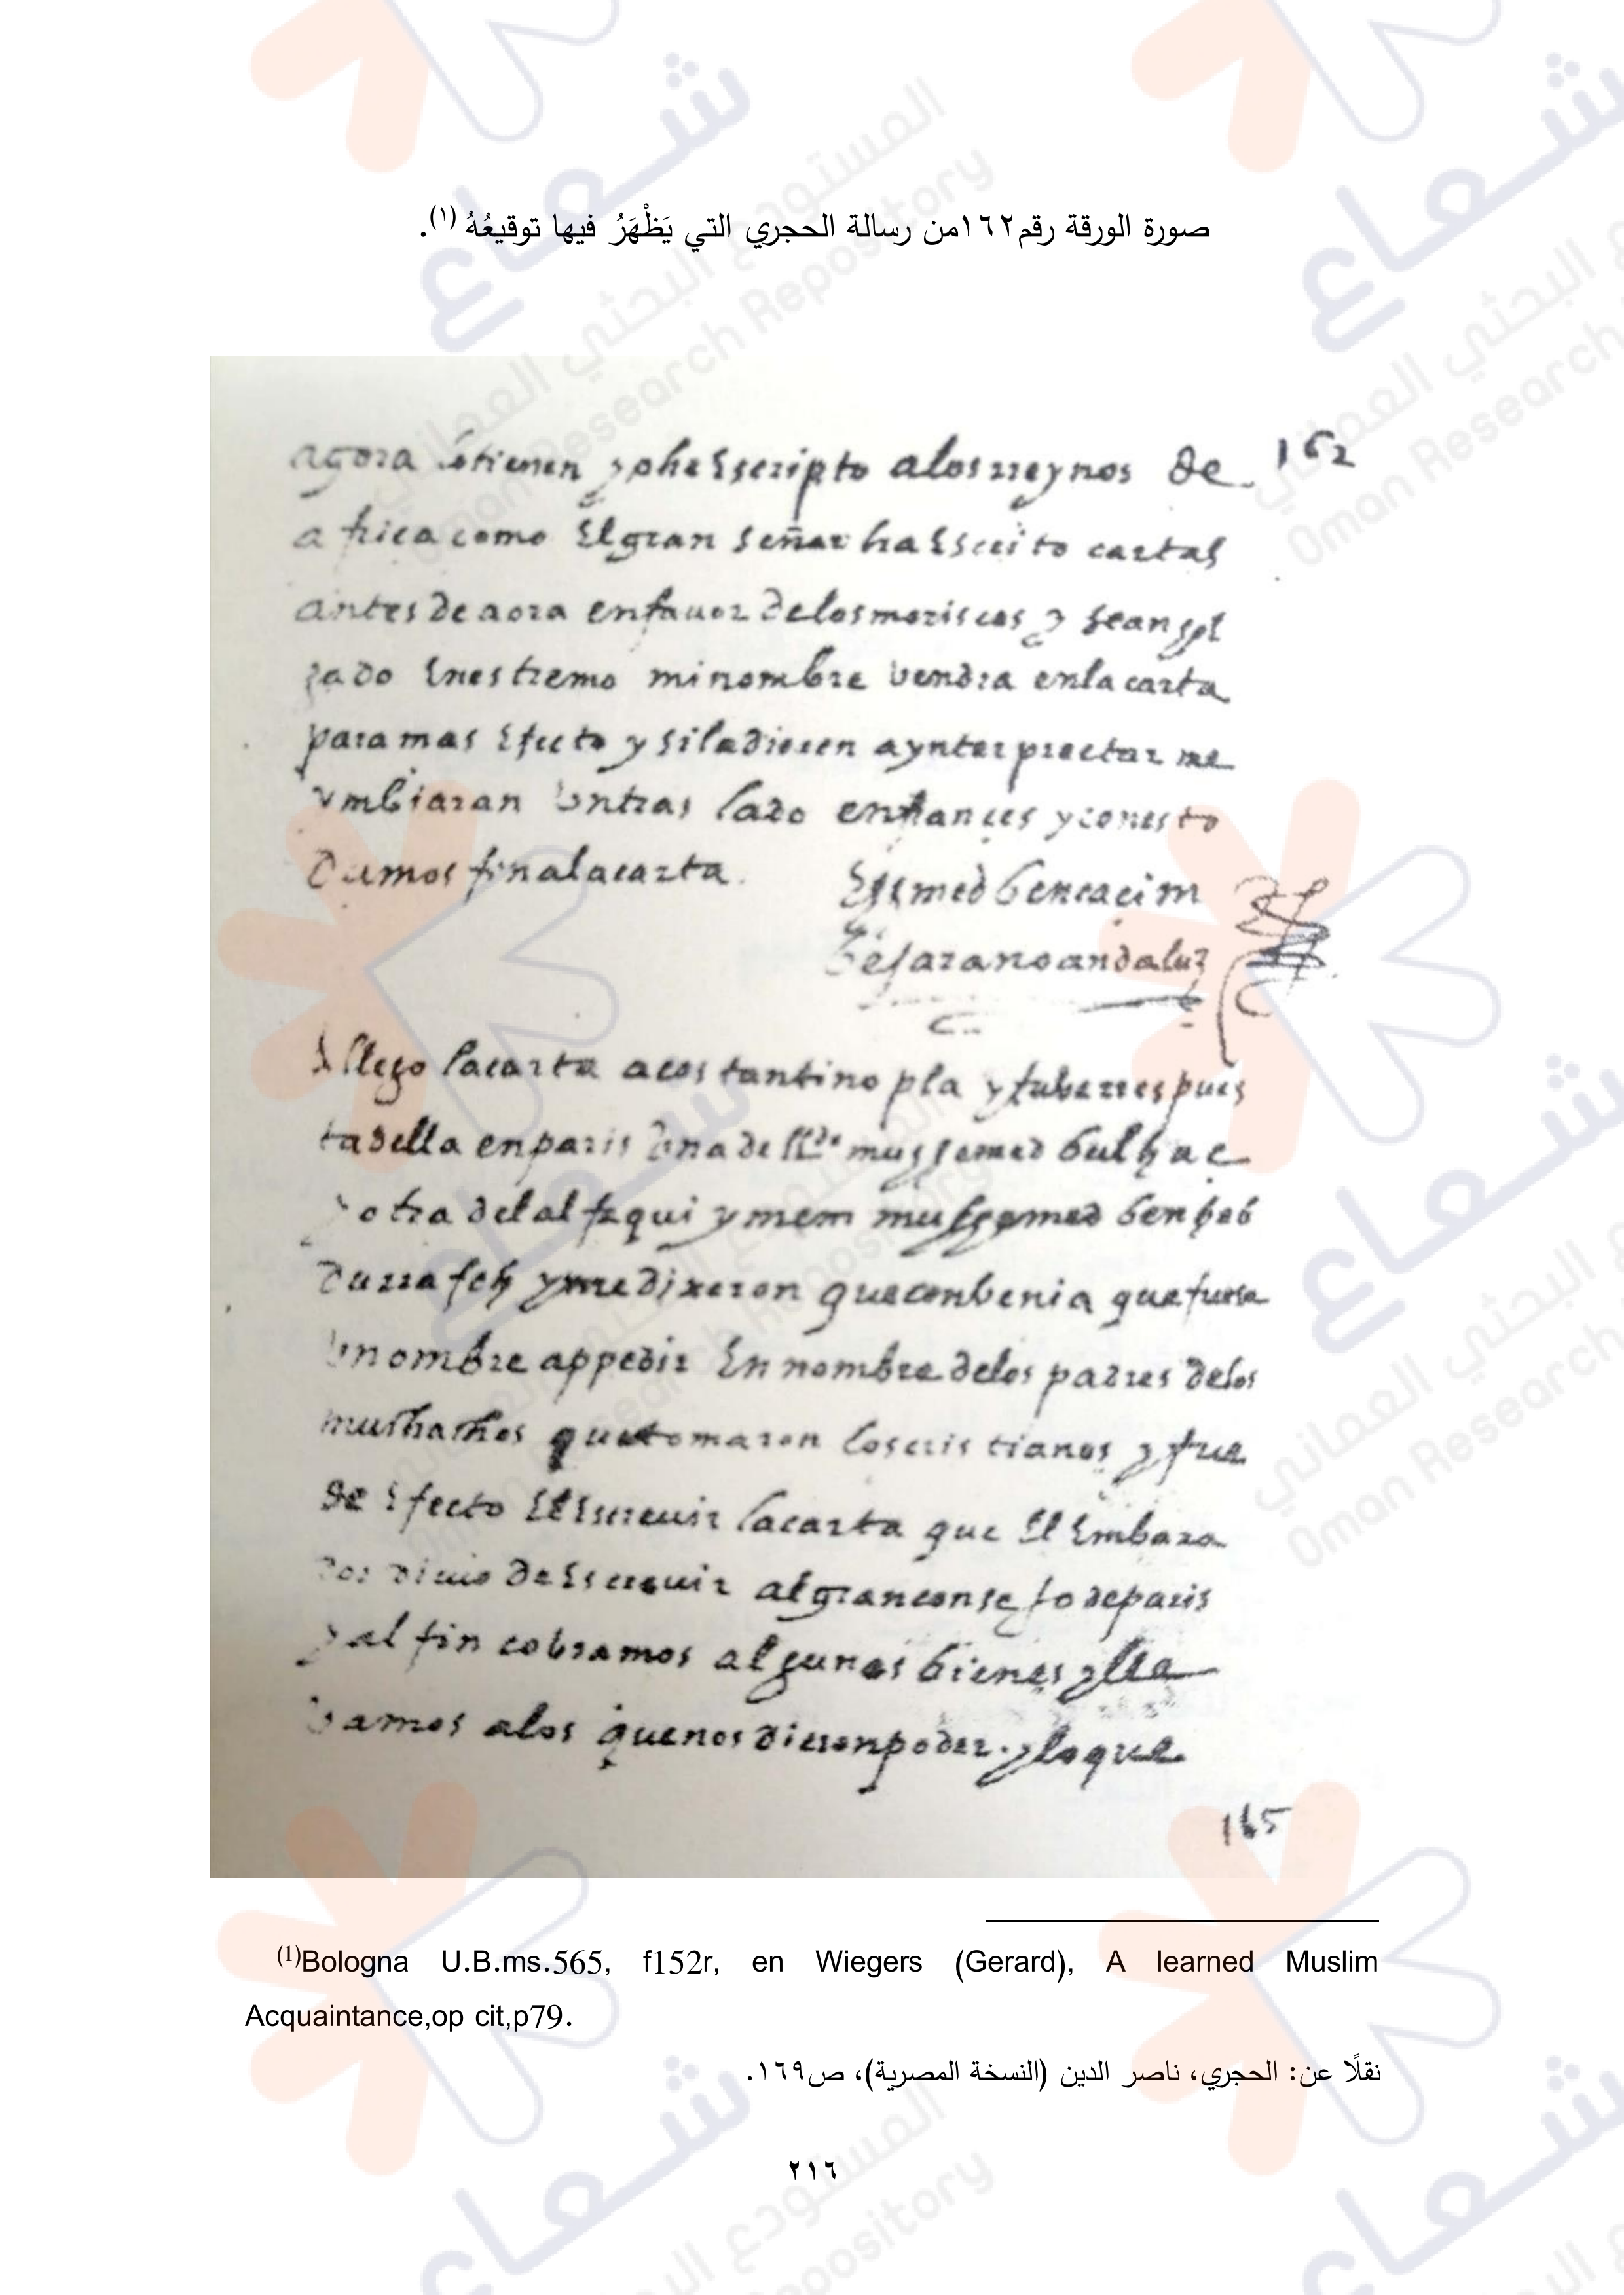 صورة الورقة رقم١٦٢من رسالة الحجري التي يَظْهَرُ فيها توقيعُهُ (١).
162
agora tienen y ohe Escripto alos rreynos de
africa como El gran señor ha Escrito cartas
antes de aora en fauor de los moriscos y
En estremo mi nombre vendra en la carta
para mas Efecto y si la dieren a ynterpretar me
ymbiaran en frances y con esto
Damos fin a la carta.
Ehmed bencacim
bejarano andaluz
llego la carta a costantinopla y tube rrespues
ta della en paris una de muhemed
y otra del alfaqui muhemed ben
y me dixeron que conbenia que fuese
un ombre a ppedir En nombre de los padres de los
muchachos que tomaron los cristianos y fue
de Efecto El Escreuir la carta que El Embaxa
dor de Escreuir al gran consejo de paris
y al fin cobramos algunos bienes y lle
bamos a los que nos dieron poder. y lo que
165
(1)Bologna U.B.ms.565, f152r, en Wiegers (Gerard), A learned Muslim
Acquaintance,op cit,p79.
نقلًا عن: الحجري، ناصر الدين (النسخة المصرية)، ص١٦٩.
٢١٦
شعاع
المستودع البحثي العماني
Oman Research Repository